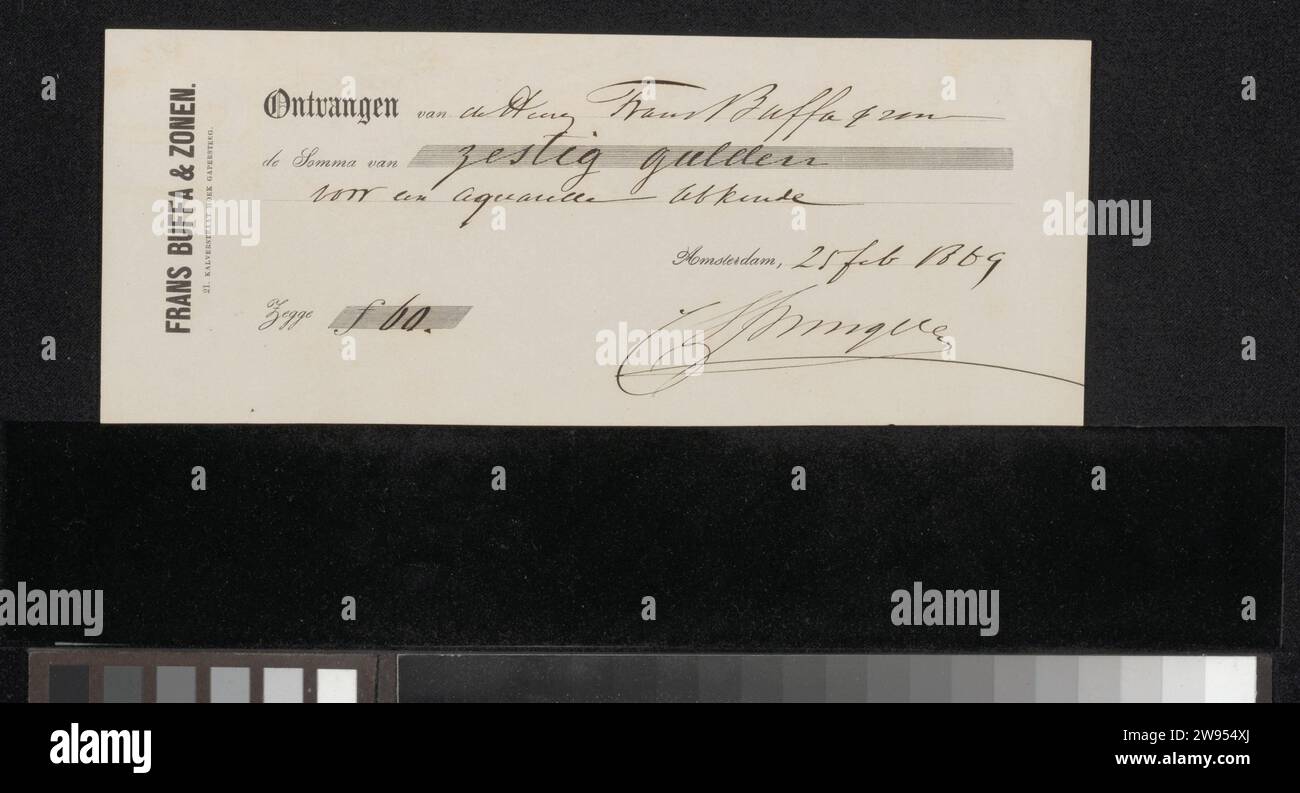 FRANS BUFFA & ZONEN.
21. KALVERSTRAAT HOEK GAPERSTEEG.
Ontvangen van de Heeren Frans Buffa & zonen
de Somma van zestig gulden
voor een aquarelle
Amsterdam, 25 feb 1869
Zegge f 60.
CSpringer
alamy
Image ID: 2W954XJ
www.alamy.com